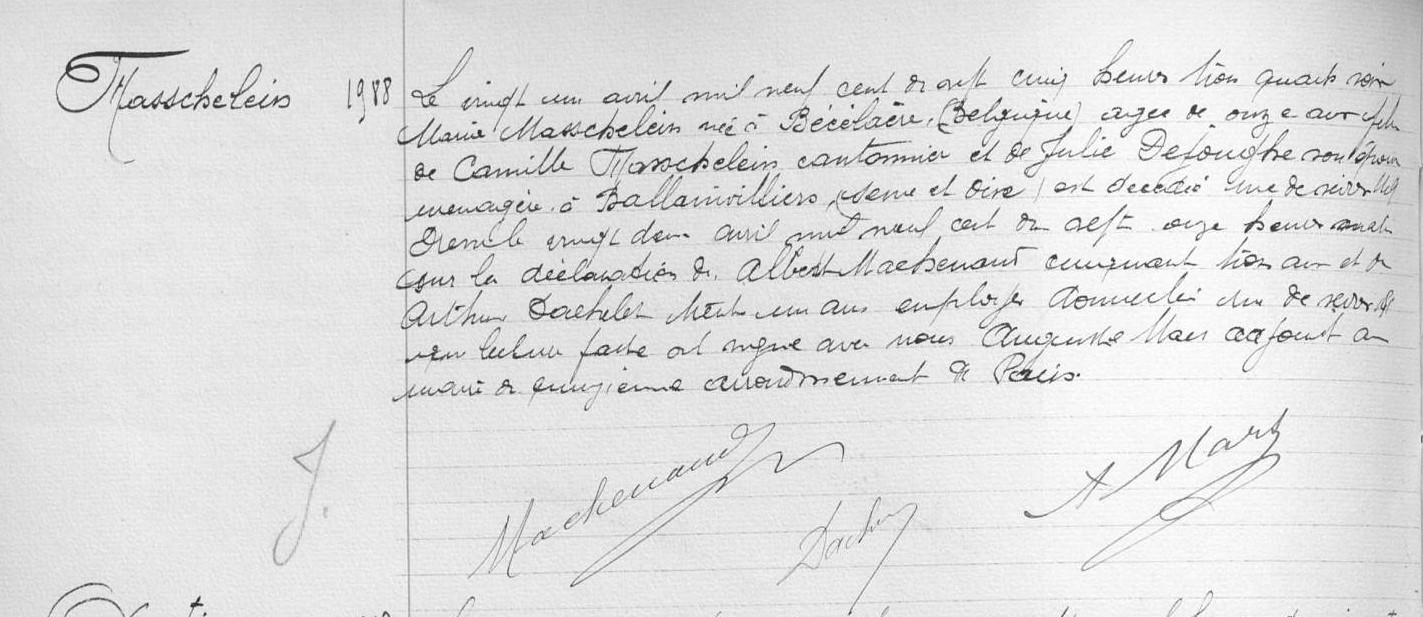 Masschelein 1988
Le vingt un avril mil neuf cent dix sept cinq heures trois quarts soir
Marie Masschelein née à Bécélaère, (Belgique) agée de onze ans fille
de Camille Masschelein cantonnier et de Julie Dejonghe son épouse
menagère à Ballainvilliers (Seine et Oise) est décédée rue de Sèvres
Dressé le vingt deux avril mil neuf cent dix sept onze heures matin
sur la déclaration de Albert Mackenaud cinquant trois ans et de
Arthur Dachelet trente un ans employés domiciliés rue de Sèvres
lecture faite ont signé avec nous Auguste Mars adjoint au
maire du quinzieme arrondissement de Paris.
J.
Mackenaud
A Mars